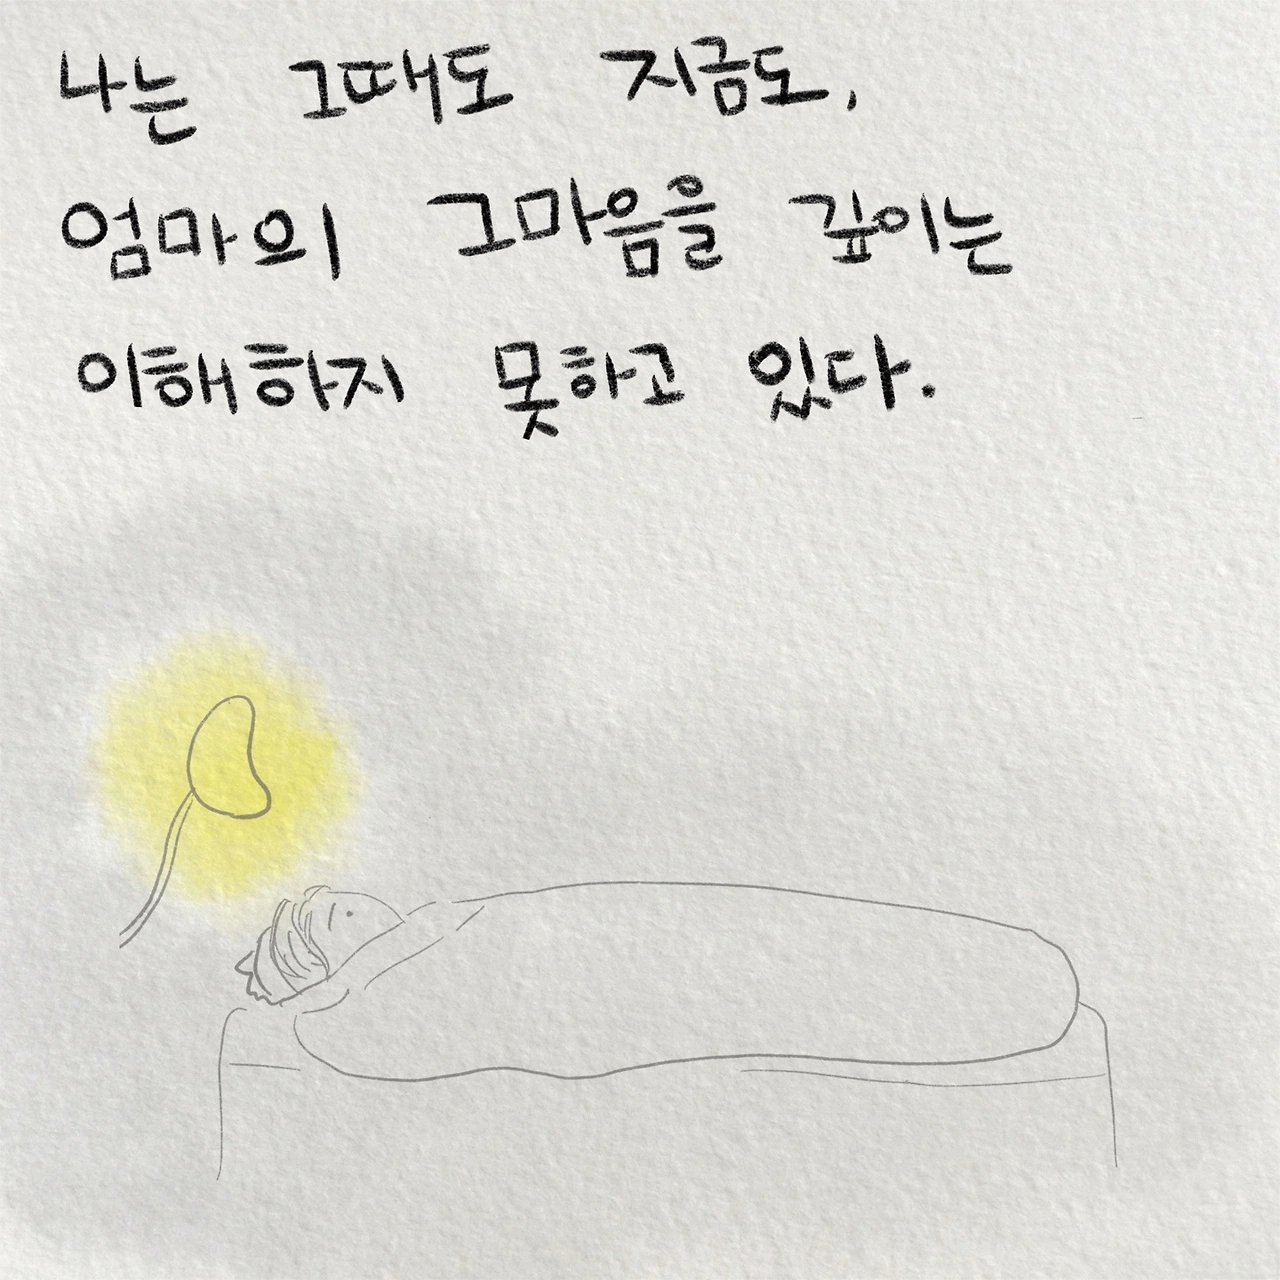 나는 그때도 지금도,
엄마의 그마음을 깊이는
이해하지 못하고 있다.